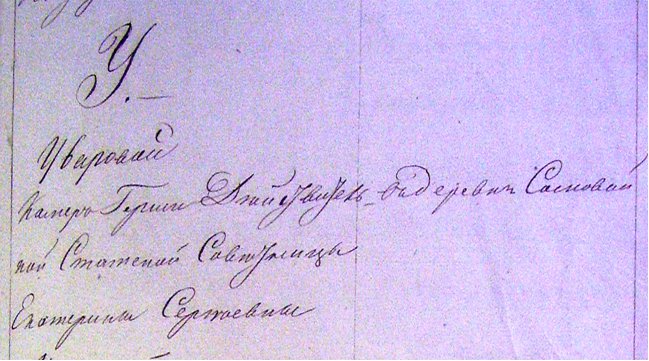 У.
Уваровой
Камеръ Герши Дѣйствитель- въ деревни Сосновой
ной Статской Советницы
Екатерины Сергѣевны